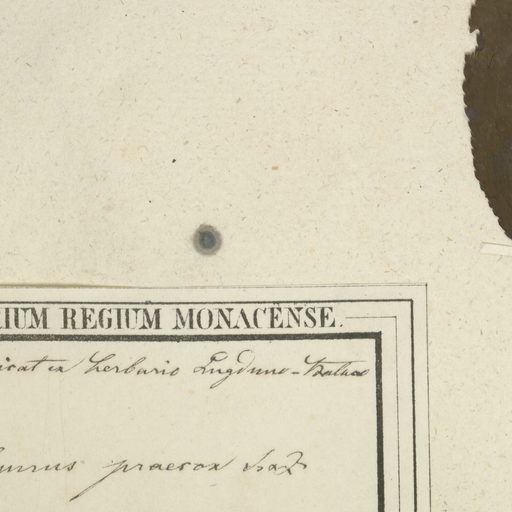 IUM REGIUM MONACENSE.
icat ex herbario Lugduno-Batavo
praecox